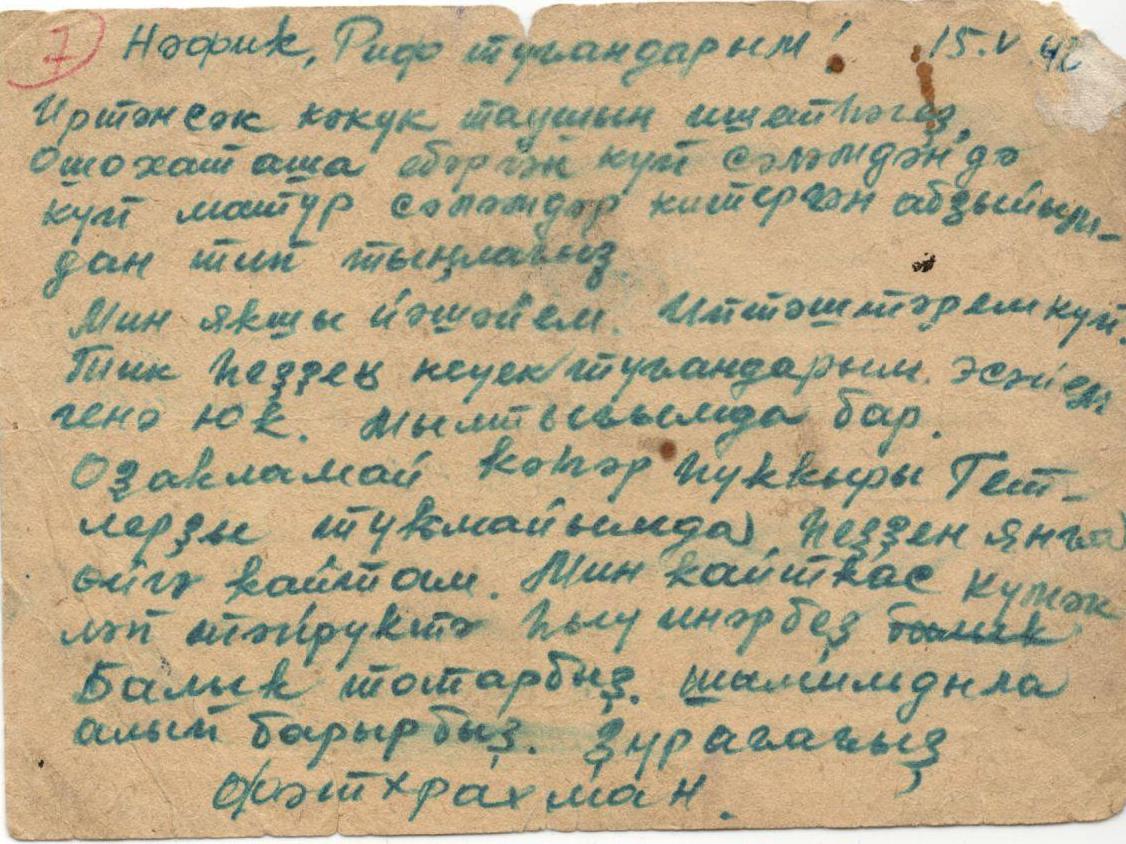 7 Нәфик, Риф туғандарым! 15.V.42
Иртәнсәк кәкук таушын ишетһәгеҙ,
Ошохат аша ебәргән күп сәләмдән дә
күп матур сәләмдәр китергән абзыйығы-
дан тип тыңлағыҙ.
Мин якшы йәшәйем. Иптәштәрем күп.
Тик һеҙҙең кеуек туғандарым. әсәйем
генә юк. Мылтығымда бар.
Оҙакламай кәһәр һуккыры Гет-
лерҙы тукмайымда һеҙҙен янға
өйгә кайтам. Мин кайткас күмәк
ләп тәйрүктә һыу инәрбеҙ
Балык тотарбыҙ. шамилдыла
алып барырбыҙ. Ҙур ағағыҙ
Фәтхрахман.